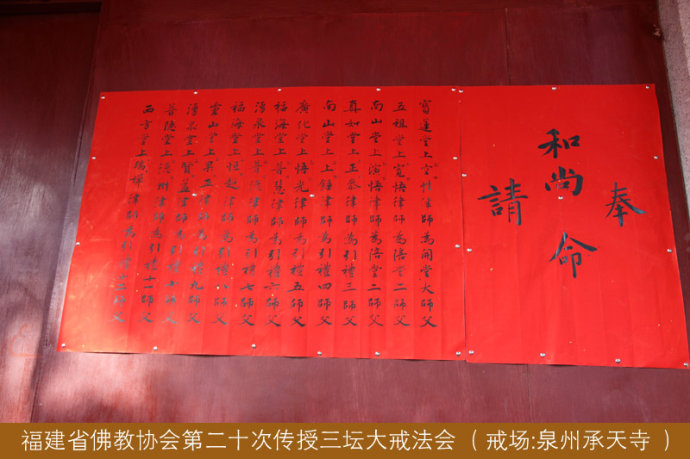 奉
和尚命
請
寶蓮堂上空性律師為開堂大師父
五祖堂上寬悟律師為陪堂二師父
南山堂上演悟律師為陪堂二師父
真如堂上正泰律師為引禮三師父
南山堂上律師為引禮四師父
廣化堂上悟光律師為引禮五師父
福海堂上普慧律師為引禮六師父
湧泉堂上普法律師為引禮七師父
福海堂上律師為引禮八師父
靈山堂上正律師為引禮師父
湧泉堂上賢益律師為引禮九師父
堂上法樹律師為引禮十師父
西方堂上瑞禪律師為引禮十一師父
福建省佛教协会第二十次传授三坛大戒法会 （ 戒场:泉州承天寺 ）